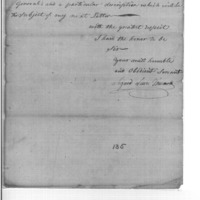 particular description which will be
the subject of my next Letter
with the greatest respect
I have the honor to be
Your most humble
and Obedient Servant
Signed